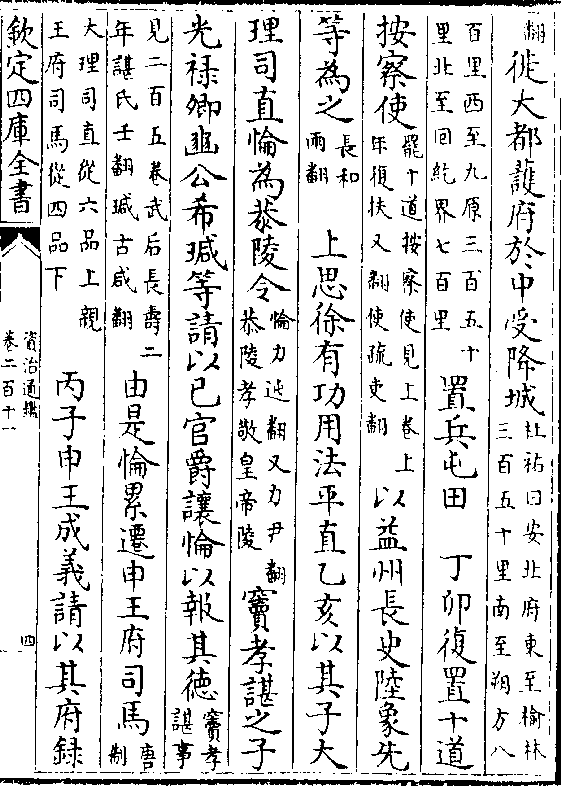 翻徙大都護府於中受降城杜祐曰安北府東至榆林三百五十里南至朔方八
百里西至九原三百五十里北至回紇界七百里置兵屯田　丁卯復置十道
按察使罷十道按察使見上卷上年復扶又翻使疏吏翻以益州長史陸象先
等為之長和兩翻　上思徐有功用法平直乙亥以其子大
理司直惀為恭陵令惀力迍翻又力尹翻恭陵孝敬皇帝陵竇孝諶之子
光禄卿豳公希瑊等請以已官爵讓惀以報其德竇孝諶事
見二百五卷武后長壽二年諶氏壬翻瑊古咸翻由是惀累遷申王府司馬唐制
大理司直從六品上親王府司馬從四品下　丙子申王成義請以其府録
欽定四庫全書
資治通鑑
卷二百十一
四